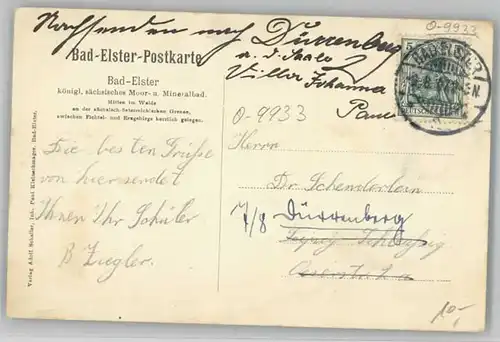 O-9933
Nachsenden nach Dürrenberg
a. d. Saale
Villa Johanna
Bad-Elster-Postkarte
Bad-Elster
königl. sächsisches Moor- u. Mineralbad.
Mitten im Walde
an der sächsisch-österreichischen Grenze,
zwischen Fichtel- und Erzgebirge herrlich gelegen.
5
BAD ELSTER
O-9933
Die besten Grüße
von hier sendet
Ihnen Ihr Schüler
B Ziegler.
Herrn
Dr Schenderlein
7/8 Dürrenberg
Verlag Adolf Schaller, Inh. Paul Kleinschmager, Bad-Elster.
10,-